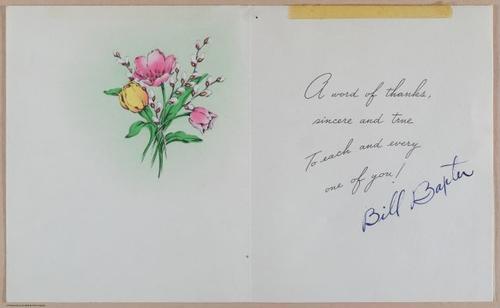 A word of thanks,
sincere and true
To each and every
one of you!
Bill Baxter